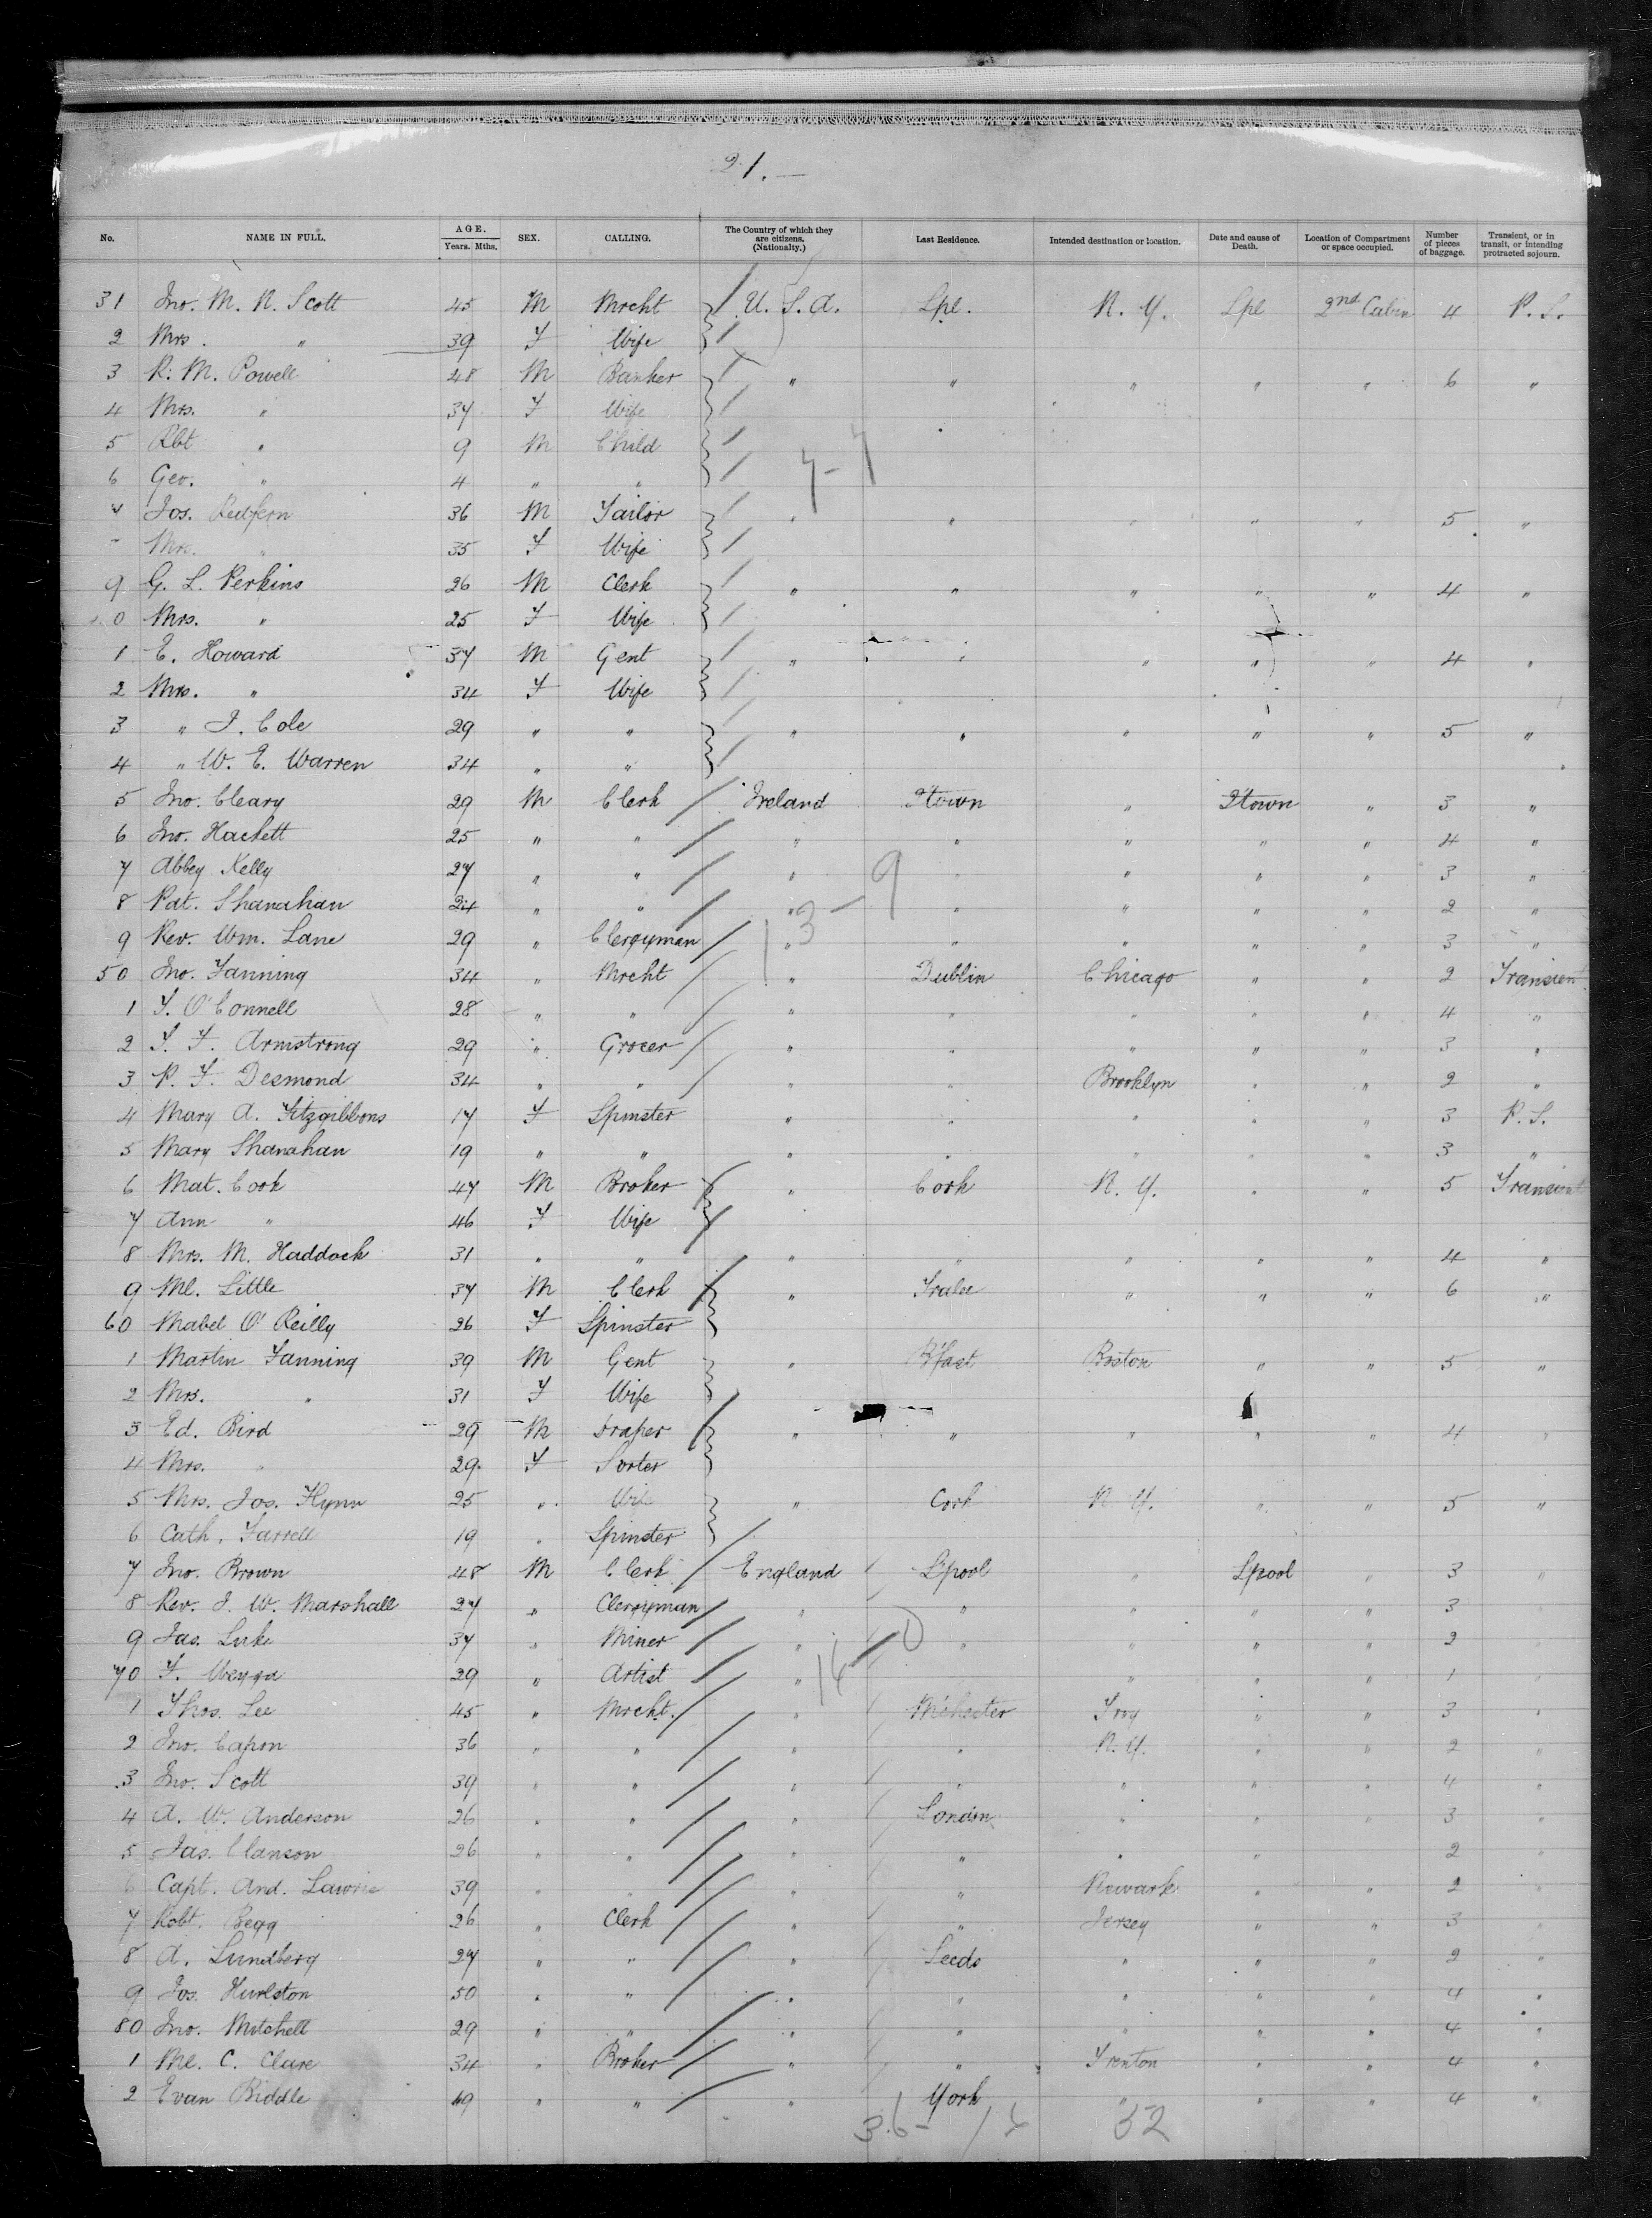 21. —
No. NAME IN FULL. AGE. Years. Mths. SEX. CALLING. The Country of which they are citizens. (Nationalty.) Last Residence. Intended destination or location. Date and cause of Death. Location of Compartment or space occupied. Number of pieces of baggage. Transient, or in transit, or intending protracted sojourn.
31 Jno. M. N. Scott 45 M Mrcht U. S. A. Lpl. N. Y. Lpl 2nd Cabin 4 P. S.
2 Mrs. " 39 F Wife
3 R. M. Powell 48 M Banker " " " " " 6 "
4 Mrs. " 37 F Wife
5 Rbt " 9 M Child
6 Geo. " 4 " "
7-7
7 Jos. Redfern 36 M Tailor " " " " " 5 "
Mrs. " 35 F Wife
9 G. L. Perkins 26 M Clerk " " " " " 4 "
0 Mrs. " 25 F Wife
1 E. Howard 37 M Gent " " " " " 4 "
2 Mrs. " 34 F Wife
3 " J. Cole 29 " " " " " " " 5 "
4 " W. E. Warren 34 " "
5 Jno. Cleary 29 M Clerk Ireland Qtown " Qtown " 3 "
6 Jno. Hackett 25 " " " " " " " 4 "
7 Abbey Kelly 27 " " " " " " " 3 "
8 Pat. Shanahan 24 " " " " " " " 2 "
13 - 9
9 Rev. Wm. Lane 29 " Clergyman " " " " " 3 "
50 Jno. Fanning 34 " Mrcht " Dublin Chicago " " 2 Transient
1 T. O'Connell 28 " " " " " " " 4 "
2 T. F. Armstrong 29 " Grocer " " " " " 3 "
3 P. F. Desmond 34 " " " " Brooklyn " " 2 "
4 Mary A. Fitzgibbons 17 F Spinster " " " " " 3 P. S.
5 Mary Shanahan 19 " " " " " " " 3 "
6 Mat. Cook 47 M Broker " Cork N. Y. " " 5 Transient
7 Ann " 46 F Wife
8 Mrs. M. Haddock 31 " " " " " " " 4 "
9 Ml. Little 37 M Clerk " Tralee " " " 6 "
60 Mabel O'Reilly 26 F Spinster
1 Martin Fanning 39 M Gent " B'fast Boston " " 5 "
2 Mrs. " 31 F Wife
3 Ed. Bird 29 M Draper " " " " " 4 "
4 Mrs. " 29 F Sorter
5 Mrs. Jos. Flynn 25 " Wife " Cork N. Y. " " 5 "
6 Cath. Farrell 19 " Spinster
7 Jno. Brown 48 M Clerk England L'pool " Lpool " 3 "
8 Rev. J. W. Marshall 27 " Clergyman " " " " " 3 "
9 Jas. Luke 37 " Miner " " " " " 2 "
16 - 0
70 F. 29 " Artist " " " " " 1 "
1 Thos. Lee 45 " Mrcht. " M'chester Troy " " 3 "
2 Jno. Capon 36 " " " " N. Y. " " 2 "
3 Jno. Scott 39 " " " " " " " 4 "
4 A. W. Anderson 26 " " " London " " " 3 "
5 Jas. Clanson 26 " " " " " " 2 "
6 Capt. And. Lawrie 39 " " " " Newark " " 2 "
7 Robt. Begg 26 " Clerk " " Jersey " " 3 "
8 A. Lundberg 27 " " " Leeds " " " 2 "
9 Jos. Hurlston 50 " " " " " " " 4 "
80 Jno. Mitchell 29 " " " " " " " 4 "
1 Ml. C. Clare 34 " Broker " " Trenton " " 4 "
2 Evan Biddle 49 " " " York " " " 4 "
36 - 16 52